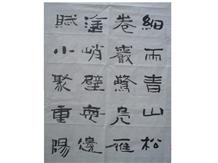 細雨青山松
卷巖驚鳧雁
峭壁邊
賦小聚重陽